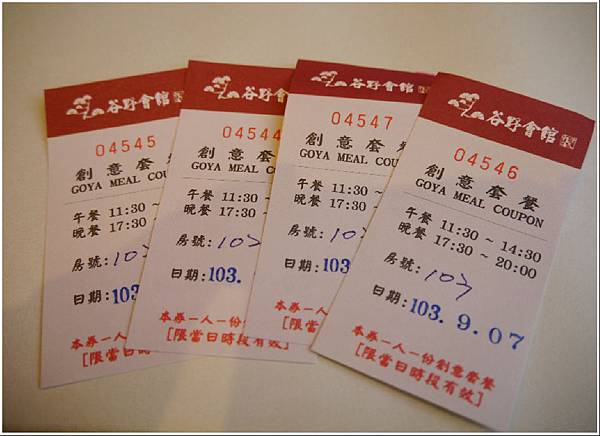 谷野會館
04545
創意套
GOYA MEAL COU
午餐 11:30 ~
晚餐 17:30 ~
房號:
日期:103
本券一人一份
[限當日時段有
谷野會館
04544
創意套
GOYA MEAL COU
午餐 11:30
晚餐 17:30
房號:
日期:103.
本券一人一份
[限當日時段有效]
谷野會館
04547
創意套餐
GOYA MEAL COUPON
午餐 11:30 ~
晚餐 17:30 ~
房號:
日期:103.
本券一人一份
[限當日時
谷野會館
04546
創意套餐
GOYA MEAL COUPON
午餐 11:30 ~ 14:30
晚餐 17:30 ~ 20:00
房號:
日期:103.9.07
本券一人一份創意套餐
[限當日時段有效]